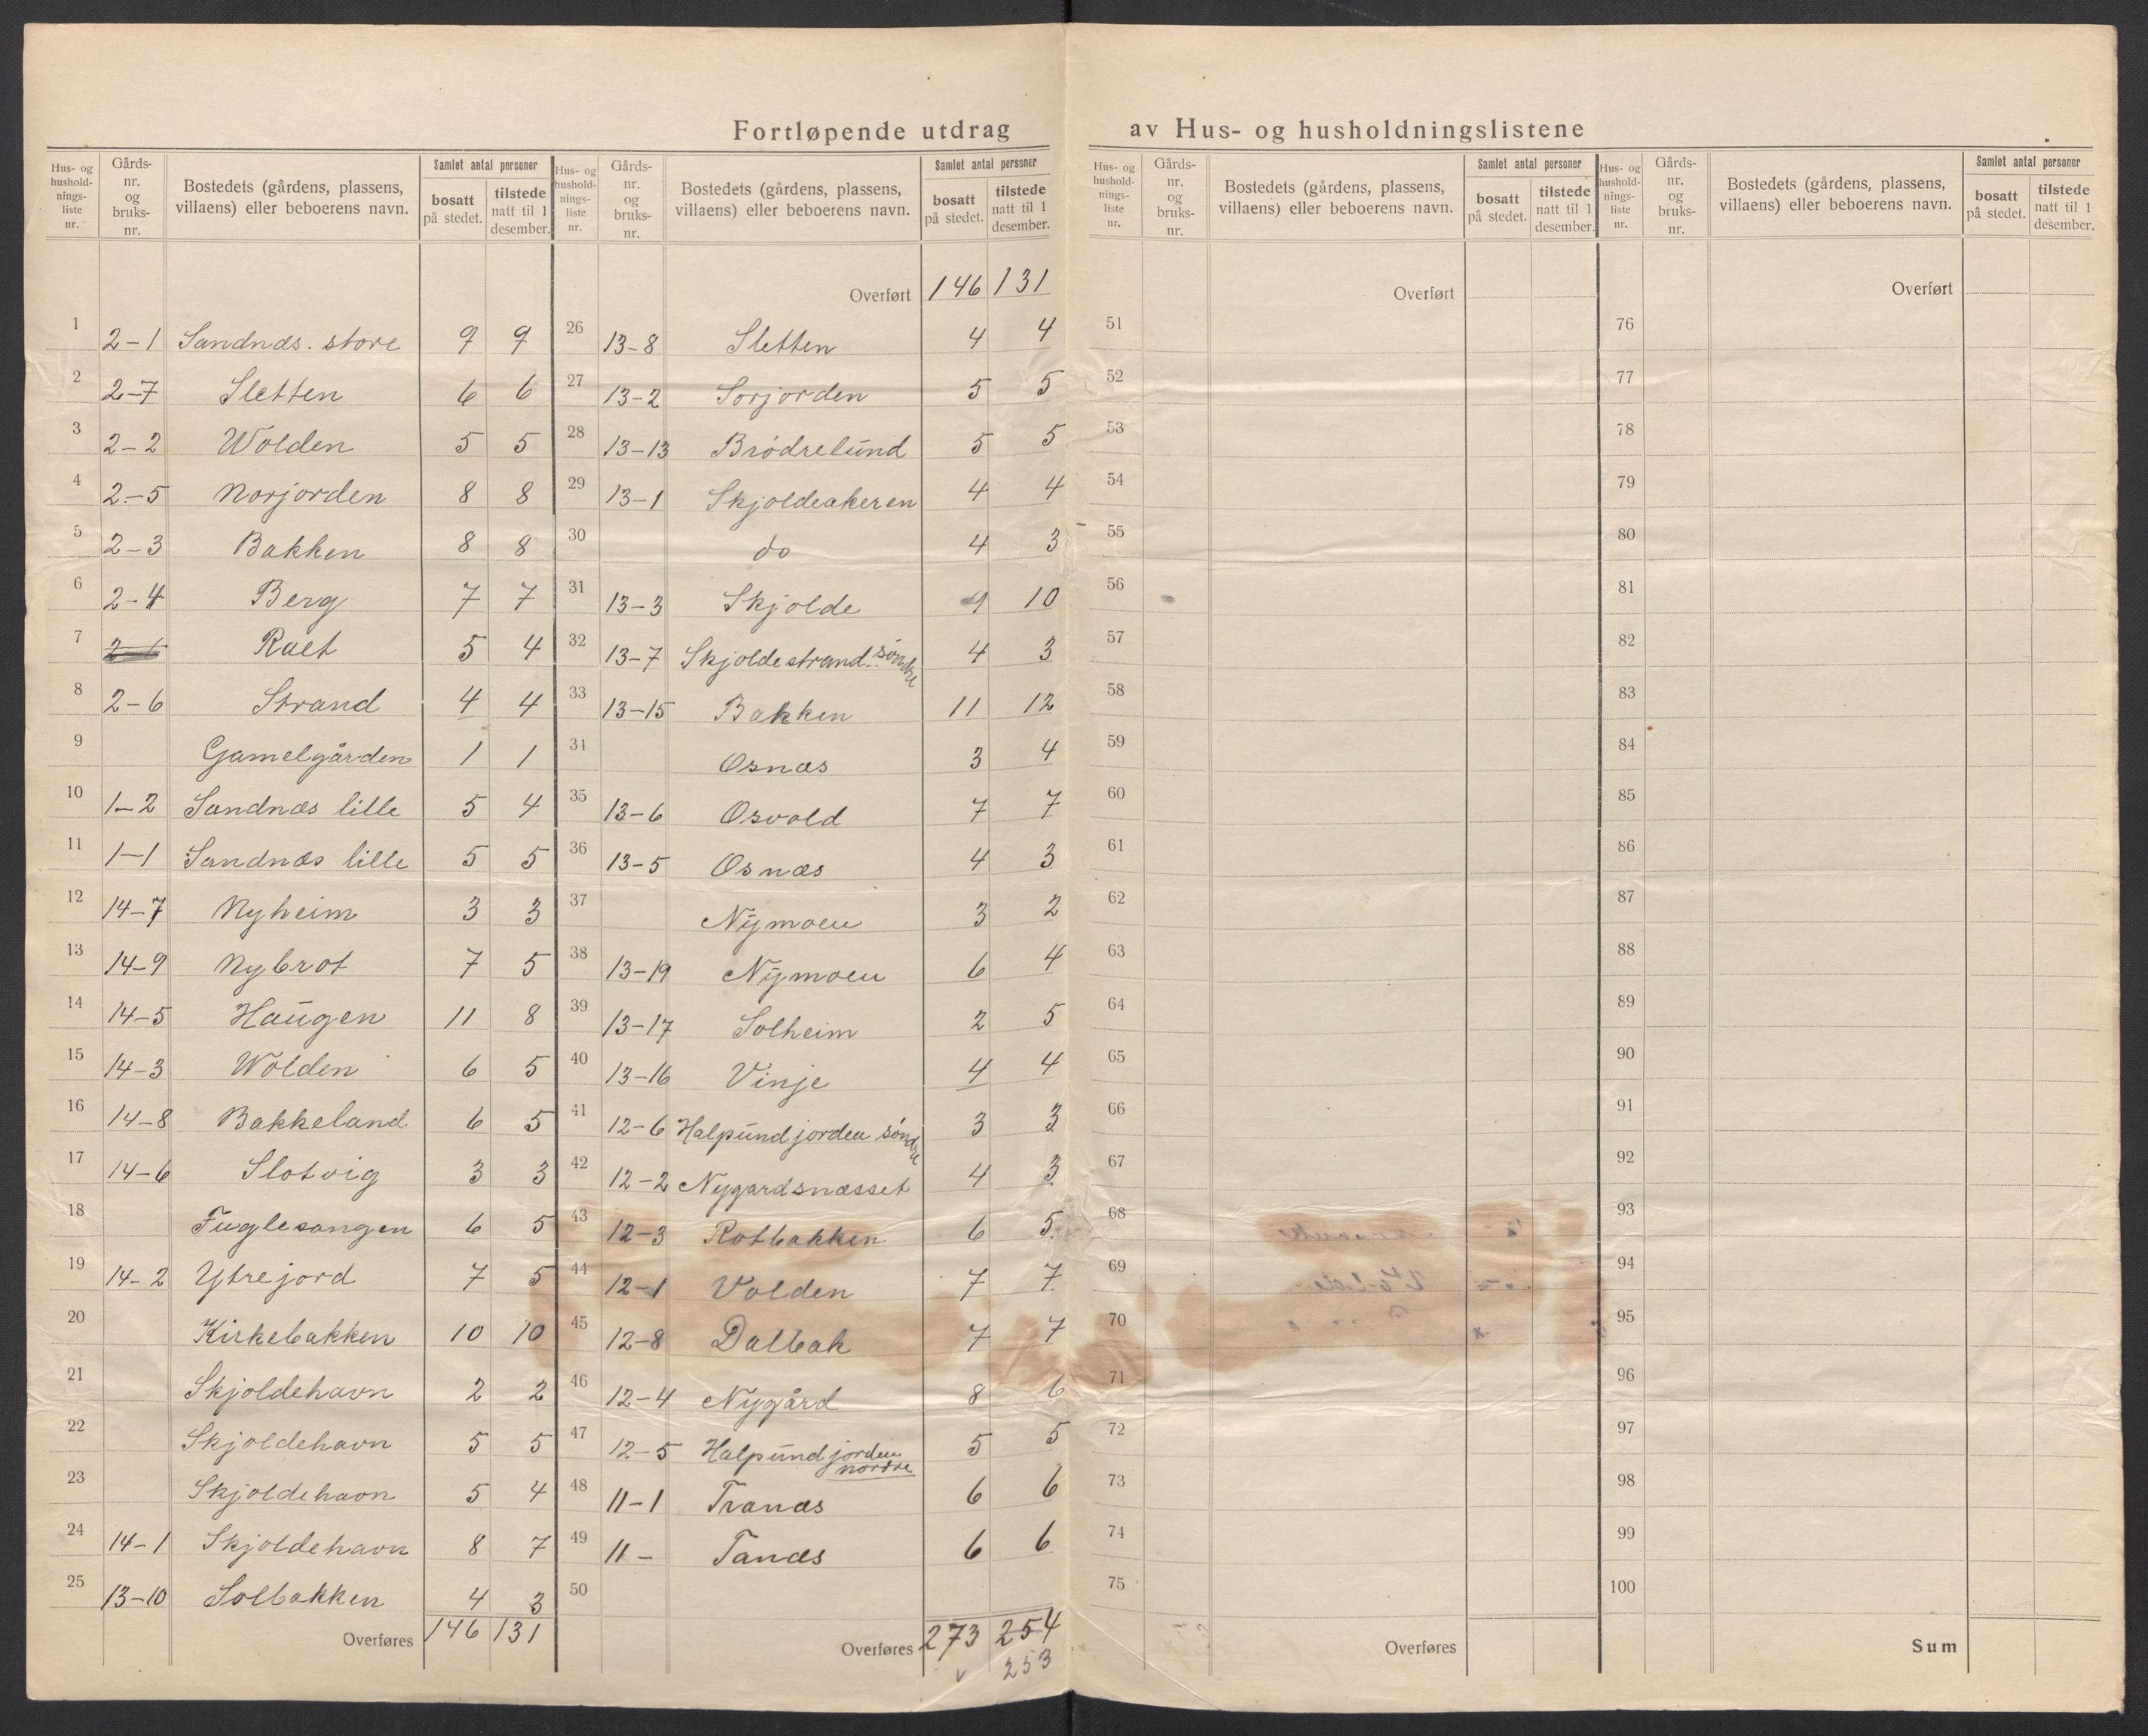 Fortløpende utdrag av Hus- og husholdningslistene
Hus- og husholdningsliste nr. | Gårds-nr. og bruks-nr. | Bostedets (gårdens, plassens, villaens) eller beboerens navn. | Samlet antal personer | bosatt på stedet. | tilstede natt til 1 desember.
1 2-1 Sandnæs. store 9 9
2 2-7 Sletten 6 6
3 2-2 Wolden 5 5
4 2-5 Norjorden 8 8
5 2-3 Bakken 8 8
6 2-4 Berg 7 7
7 Raet 5 4
8 2-6 Strand 4 4
9 Gamelgården 1 1
10 1-2 Sandnæs lille 5 4
11 1-1 Sandnæs lille 5 5
12 14-7 Nyheim 3 3
13 14-9 Nybrot 7 5
14 14-5 Haugen 11 8
15 14-3 Wolden 6 5
16 14-8 Bakkeland 6 5
17 14-6 Slotvig 3 3
18 Fuglesangen 6 5
19 14-2 Ytrejord 7 5
20 Kirkebakken 10 10
21 Skjoldehavn 2 2
22 Skjoldehavn 5 5
23 Skjoldehavn 5 4
24 14-1 Skjoldehavn 8 7
25 13-10 Solbakken 4 3
Overføres 146 131
Hus- og husholdningsliste nr. | Gårds-nr. og bruks-nr. | Bostedets (gårdens, plassens, villaens) eller beboerens navn. | Samlet antal personer | bosatt på stedet. | tilstede natt til 1 desember.
Overført 146 131
26 13-8 Sletten 4 4
27 13-2 Sorjorden 5 5
28 13-13 Brödrelund 5 5
29 13-1 Skjoldeakeren 4 4
30 do 4 3
31 13-3 Skjolde 9 10
32 13-7 Skjoldestrand. söndre 4 3
33 13-15 Bakken 11 12
34 Osnæs 3 4
35 13-6 Osvold 7 7
36 13-5 Osnæs 4 3
37 Nymoen 3 2
38 13-19 Nymoen 6 4
39 13-17 Solheim 2 5
40 13-16 Vinje 4 4
41 12-6 Halpundjorden söndre 3 3
42 12-2 Nygardsnæsset 4 3
43 12-3 Rotbakken 6 5
44 12-1 Volden 7 7
45 12-8 Dalbak 7 7
46 12-4 Nygård 8 6
47 12-5 Halpundjorden nordre 5 5
48 11-1 Tranæs 6 6
49 11- Tanæs 6 6
50
Overføres 273 254
253
Hus- og husholdningsliste nr. | Gårds-nr. og bruks-nr. | Bostedets (gårdens, plassens, villaens) eller beboerens navn. | Samlet antal personer | bosatt på stedet. | tilstede natt til 1 desember.
Overført
51
52
53
54
55
56
57
58
59
60
61
62
63
64
65
66
67
68
69
70
71
72
73
74
75
Overføres
Hus- og husholdningsliste nr. | Gårds-nr. og bruks-nr. | Bostedets (gårdens, plassens, villaens) eller beboerens navn. | Samlet antal personer | bosatt på stedet. | tilstede natt til 1 desember.
Overført
76
77
78
79
80
81
82
83
84
85
86
87
88
89
90
91
92
93
94
95
96
97
98
99
100
Sum